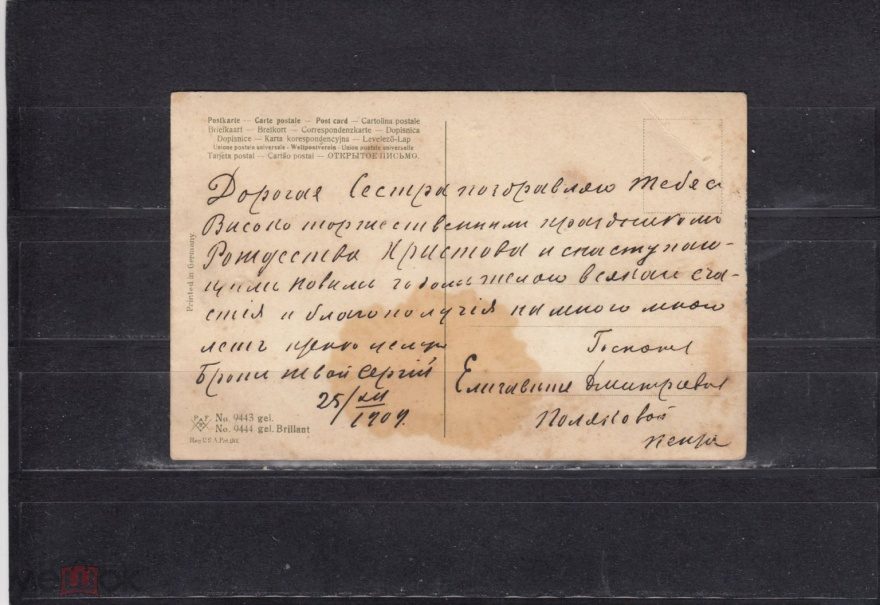 Postkarte — Carte postale — Post card — Cartolina postale
Briefkaart — Brefkort — Correspondenzkarte — Dopisnica
Dopisnice — Karta korespondencyjna — Levelező-Lap
Unione postale universale - Weltpostverein - Union postale universelle
Tarjeta postal — Cartão postal — ОТКРЫТОЕ ПИСЬМО.
Дорогая Сестра поздравляю тебя с
Високо торжественным праздником
Рождества Христова и с наступаю-
щим новым годом желаю всякаго сча-
стія и благополучія на много много
летъ
твой Сергій
25/XII
1909.
Госпоже
Елизавете Дмитріевне
Поляковой
Printed in Germany.
P F
No. 9443 gel.
No. 9444 gel. Brillant
Reg U.S.A. Pat. Off.
мешок